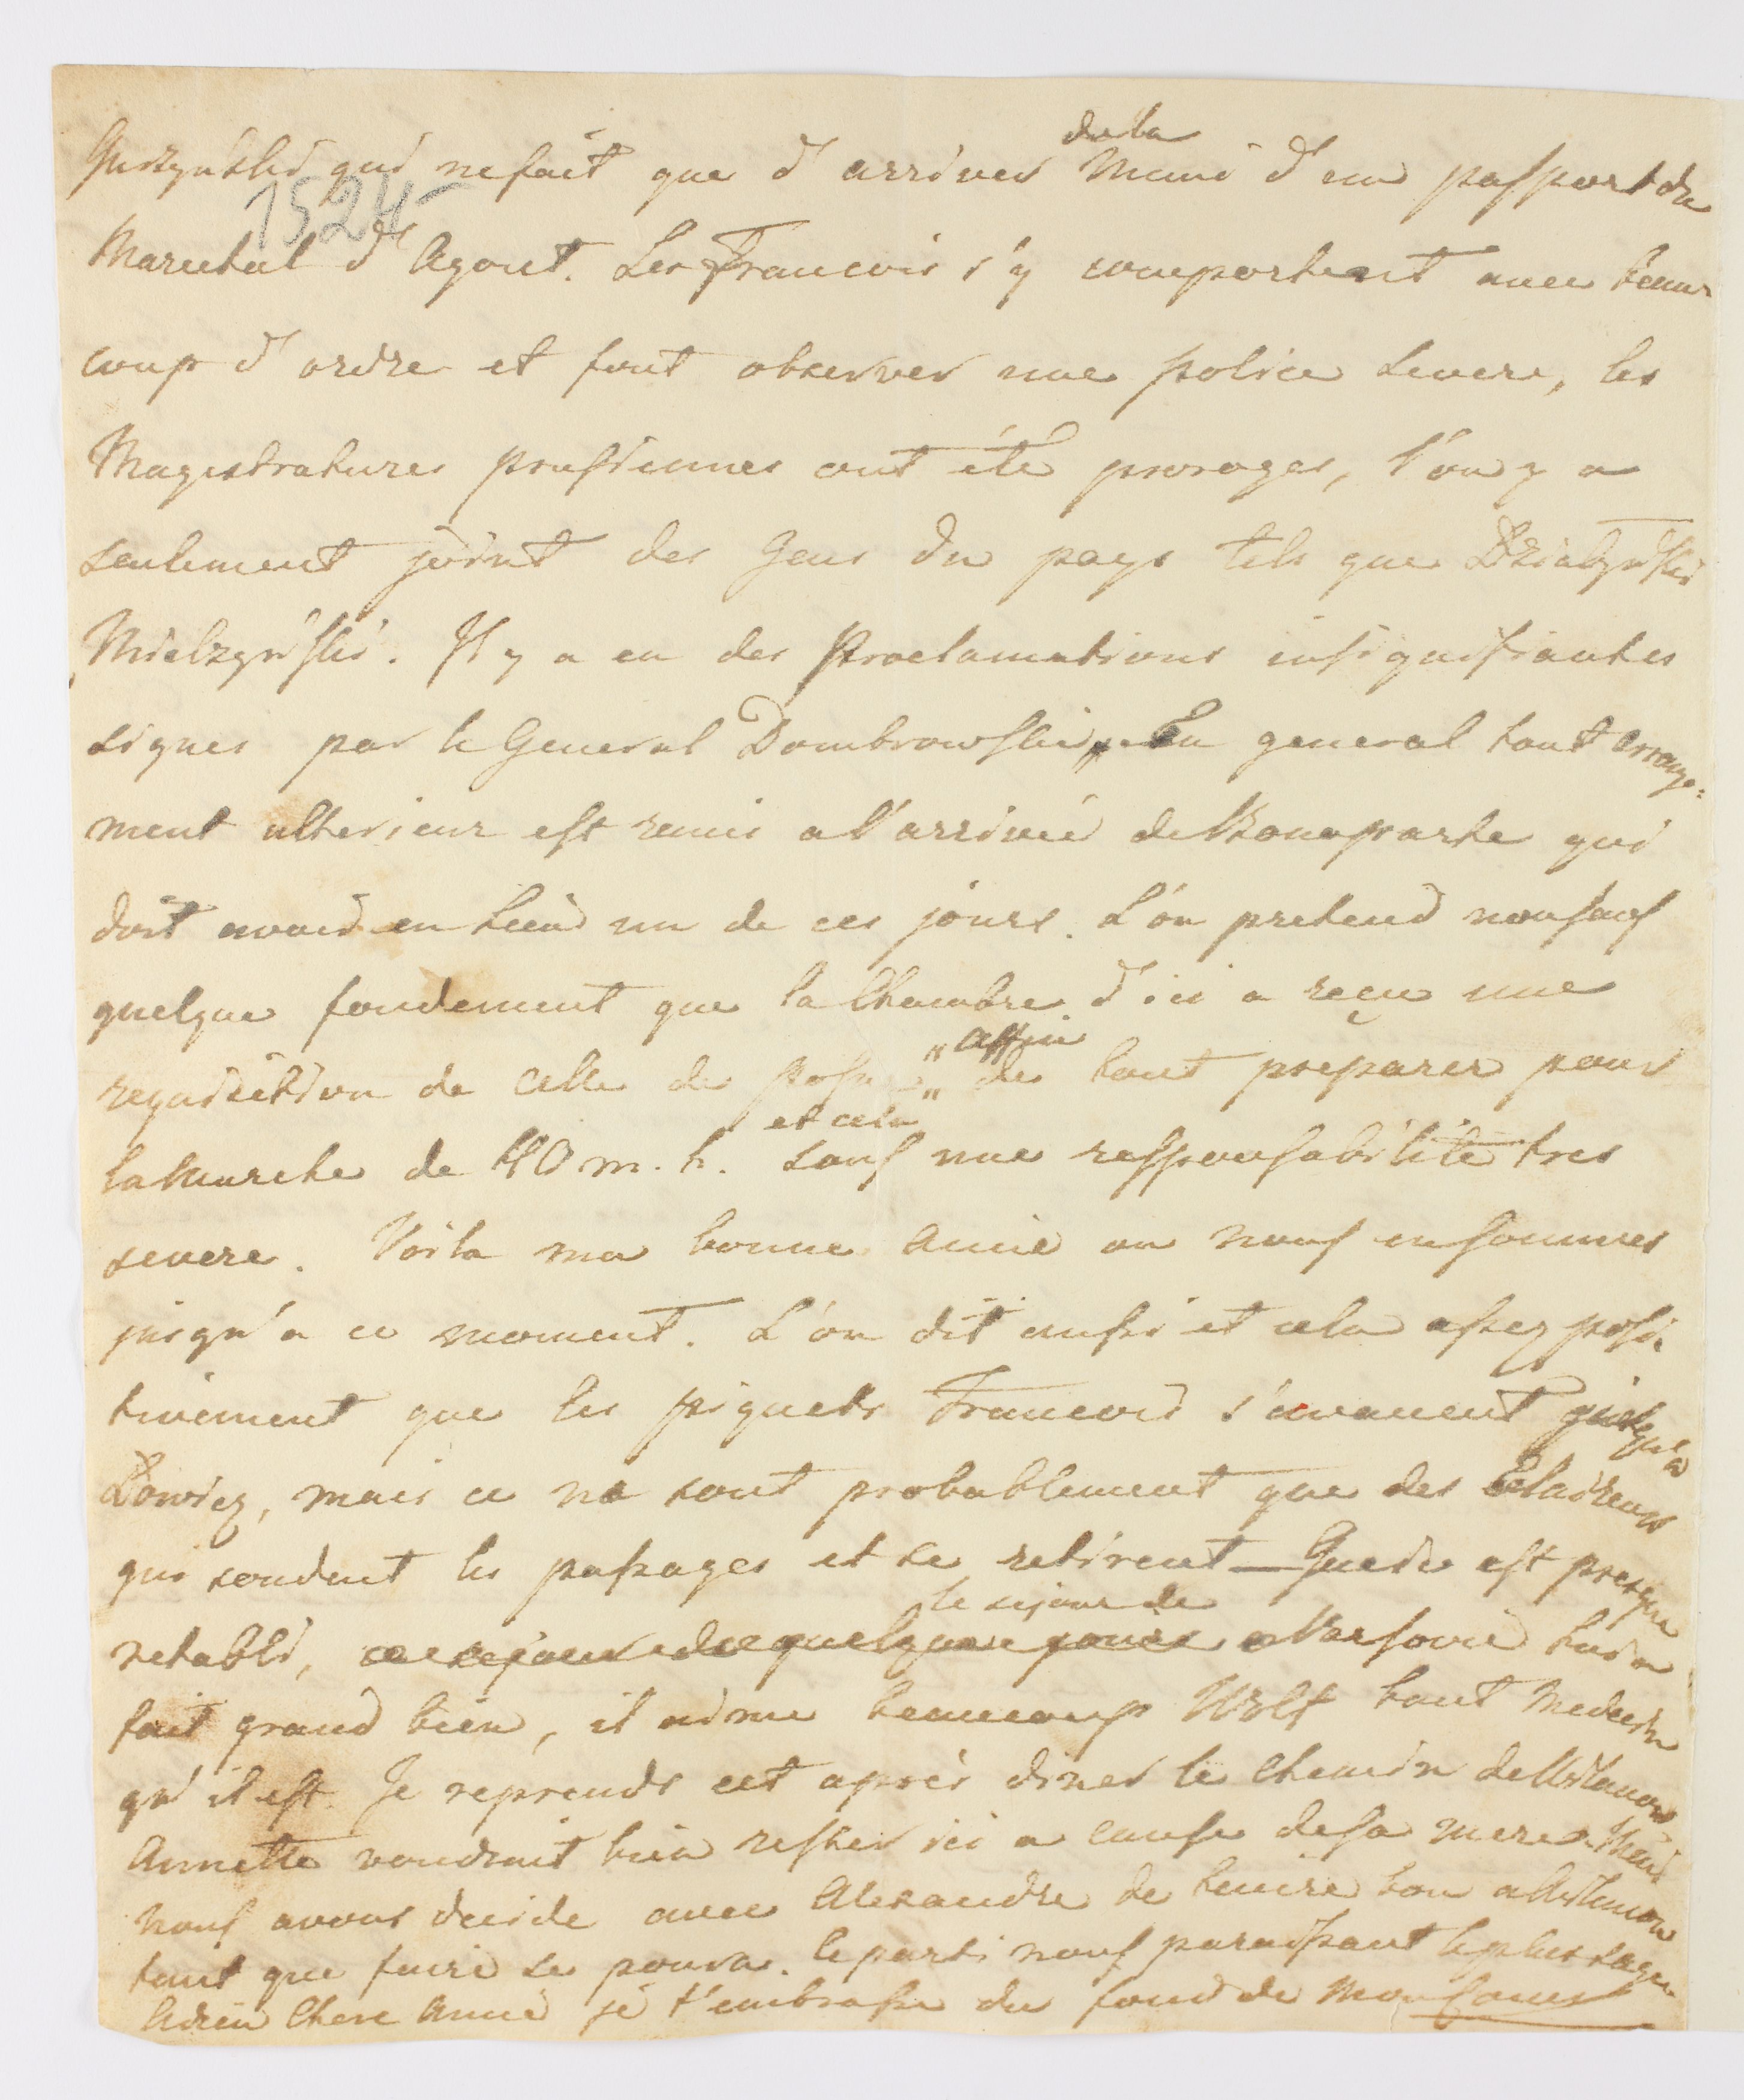 qui ne fait que d'arriver de la Muni d'un passport du
1524
Marechal d'Agout. Les Francois s'y comportent avec beau-
coup d'ordre et font observer une police severe, les
Magistratures prussiennes ont été proroges, l'on y a
seulement joint des Gens du pays tels que Dzialynski
Mielzynski. Il y a eu des Proclamations insignifiantes
signes par le General Dombrowski, En general tout arrange-
ment ulterieur est remis a l'arrivée de Bonaparte qui
doit avoir eu lieu un de ces jours. L'on pretend non sans
quelque fondement que la Chambre d'ici a reçu une
requisition de celle de Posne "affin" de tout preparer pour
la Marche de 40 m. h. et cela sous une responsabilité tres
severe. Voila ma bonne Amie ou nous en sommes
jusqu'a ce moment. L'on dit aussi et cela assez posi-
tivement que les piquets Francois s'avancent jusqu'a
Lowicz, mais ce ne sont probablement que des Eclaireurs
qui sondent les passages et se retirent — est presque
retabli, ce sejour de quelque jours le sejour de Varsovie lui a
fait grand bien, il aime beaucoup Wolf tout Medecin
qu'il est. Je reprends cet après diner le Chemin de Willanow
Annette voudrait bien rester ici a cause de sa mere.
Nous avons decide avec Alexandre de tenire bon a Willanow
tant que faire se poura. le parti nous paraissant le plus sage.
Adieu Chere Amie je t'embrasse du fond de Mon Coeur